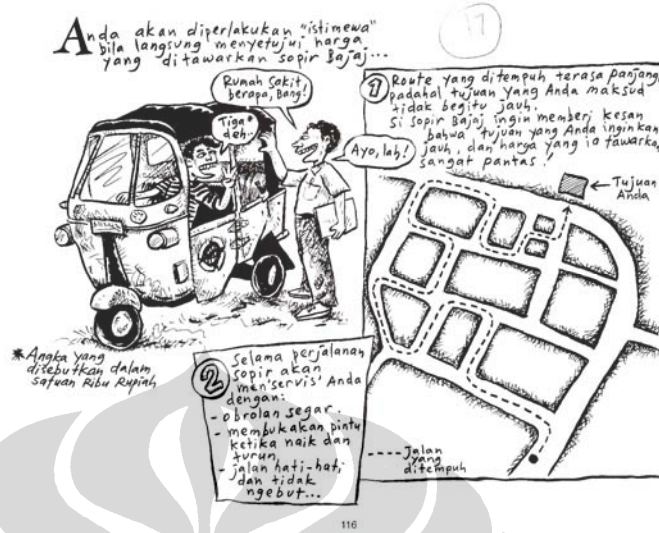 17
Anda akan diperlakukan "istimewa"
bila langsung menyetujui harga
yang ditawarkan sopir Bajaj...
Rumah Sakit
berapa, Bang!
Tiga*
deh..
Ayo, lah!
*Angka yang
disebutkan dalam
satuan Ribu Rupiah
1 Route yang ditempuh terasa panjang
padahal tujuan Yang Anda maksud
tidak begitu jauh.
si sopir Bajaj ingin memberi kesan
bahwa tujuan yang Anda inginkan
jauh, dan harga yang ia tawarkan
sangat pantas!
Tujuan
Anda
2 Selama perjalanan
sopir akan
men'servis' Anda
dengan:
- obrolan segar.
- membukakan pintu
ketika naik dan
turun.
- jalan hati-hati,
dan tidak
ngebut...
----- Jalan
yang
ditempuh
116